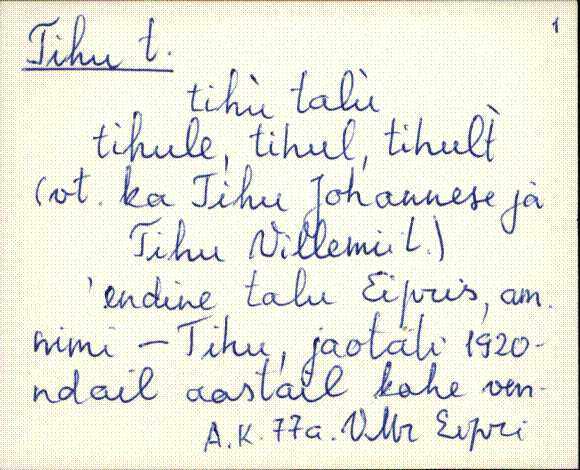 1
Tihu t.
tihù talù
tihule, tihul, tihult̀
(vt. ka Tihu Johannese ja
Tihu Villemi t.)
'endine talu Eipris, am.
nimi – Tihu, jaotati 1920-
ndail aastail kahe ven-
A.K. 77a. VMr Eipri